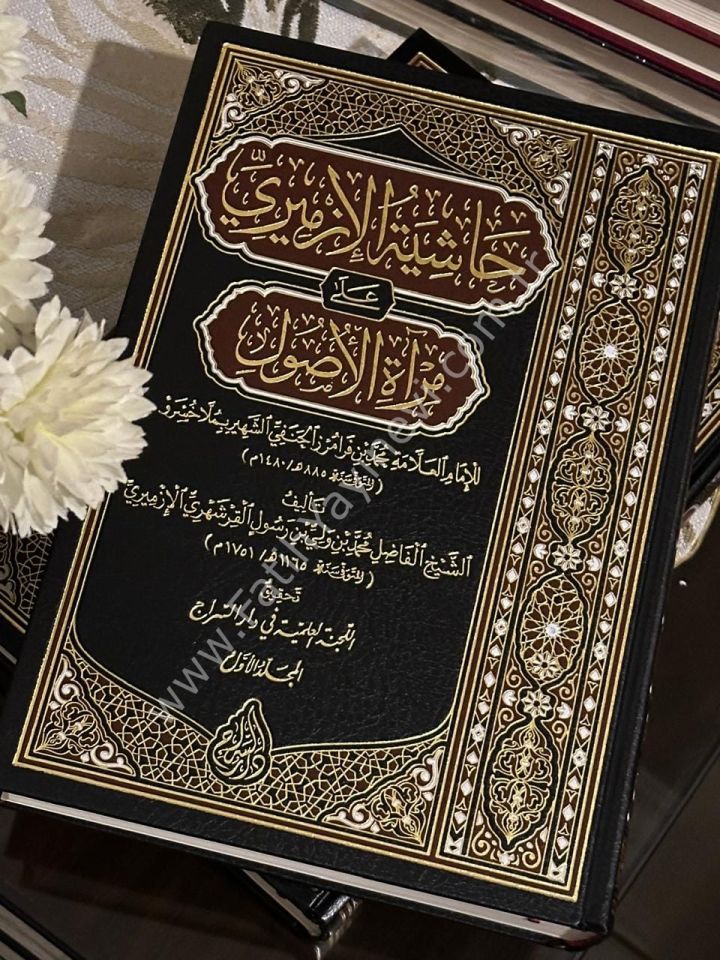 حَاشِيَةُ الإِزْمِيرِيِّ
عَلَى
مِرْآةِ الأُصُولِ
للإمام العلّامة محمّد بن فرامرز الحنفيّ الشّهير بملا خسرو
(المتوفّى سنة ٨٨٥هـ/١٤٨٠م)
تأليف
الشّيخ الفاضل محمّد بن وليّ بن رسول القرشهريّ الإزميريّ
(المتوفّى سنة ١١٦٥هـ/١٧٥١م)
تحقيق
اللّجنة العلميّة في دار السّراج
المجلّد الأوّل
دار السراج
www.FatihYayinevi.com.tr